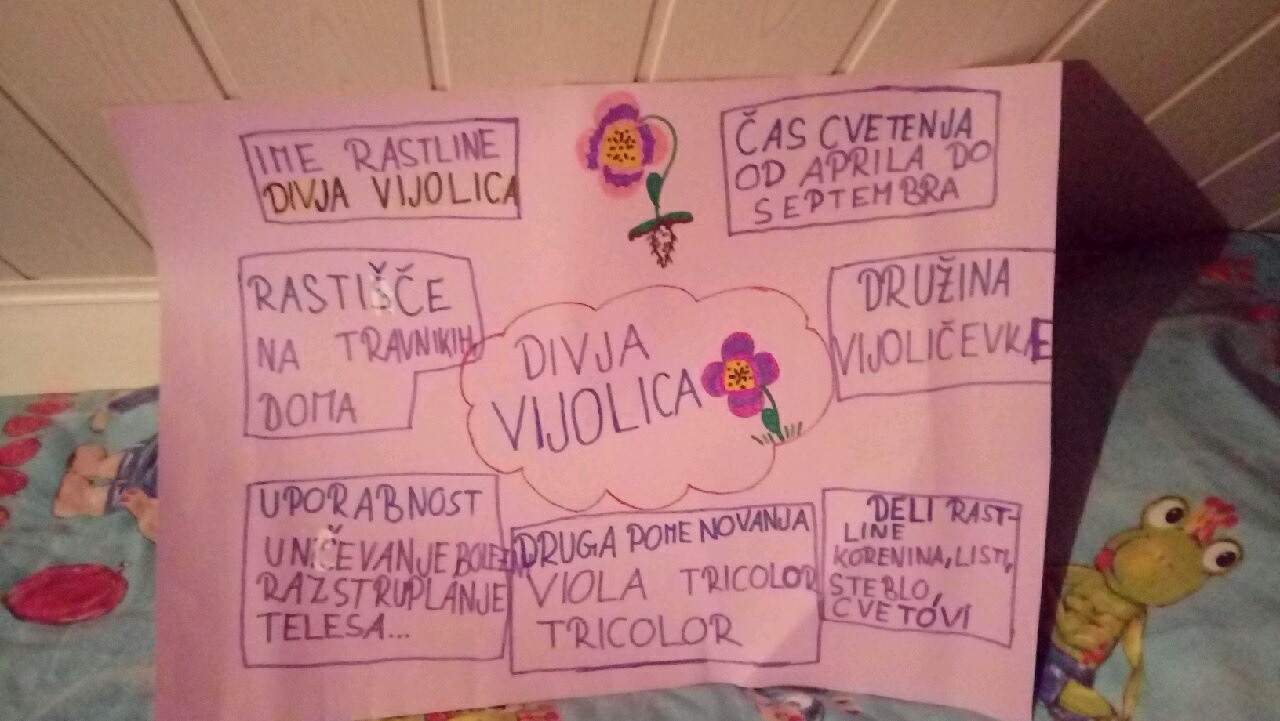 IME RASTLINE
DIVJA VIJOLICA
ČAS CVETENJA
OD APRILA DO
SEPTEMBRA
RASTIŠČE
NA TRAVNIKIH
DOMA
DIVJA
VIJOLICA
DRUŽINA
VIJOLIČEVKE
UPORABNOST
UNČEVANJE BOLEZNI
RAZSTRUPLANJE
TELESA...
DRUGA POMENOVANJA
VIOLA TRICOLOR
TRICOLOR
DELI RAST-
LINE
KORENINA, LISTI,
STEBLO,
CVETOVI